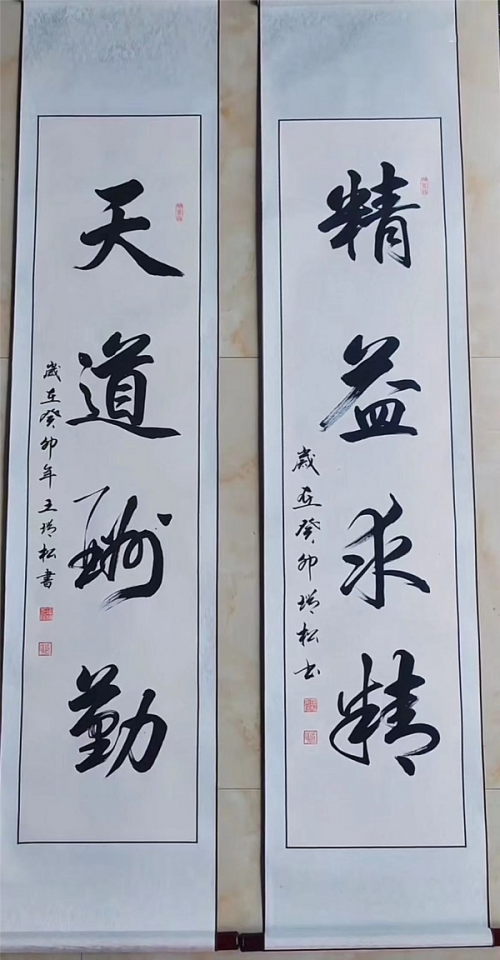 精益求精
歲在癸卯瑞松书
天道酬勤
歲在癸卯年王瑞松書